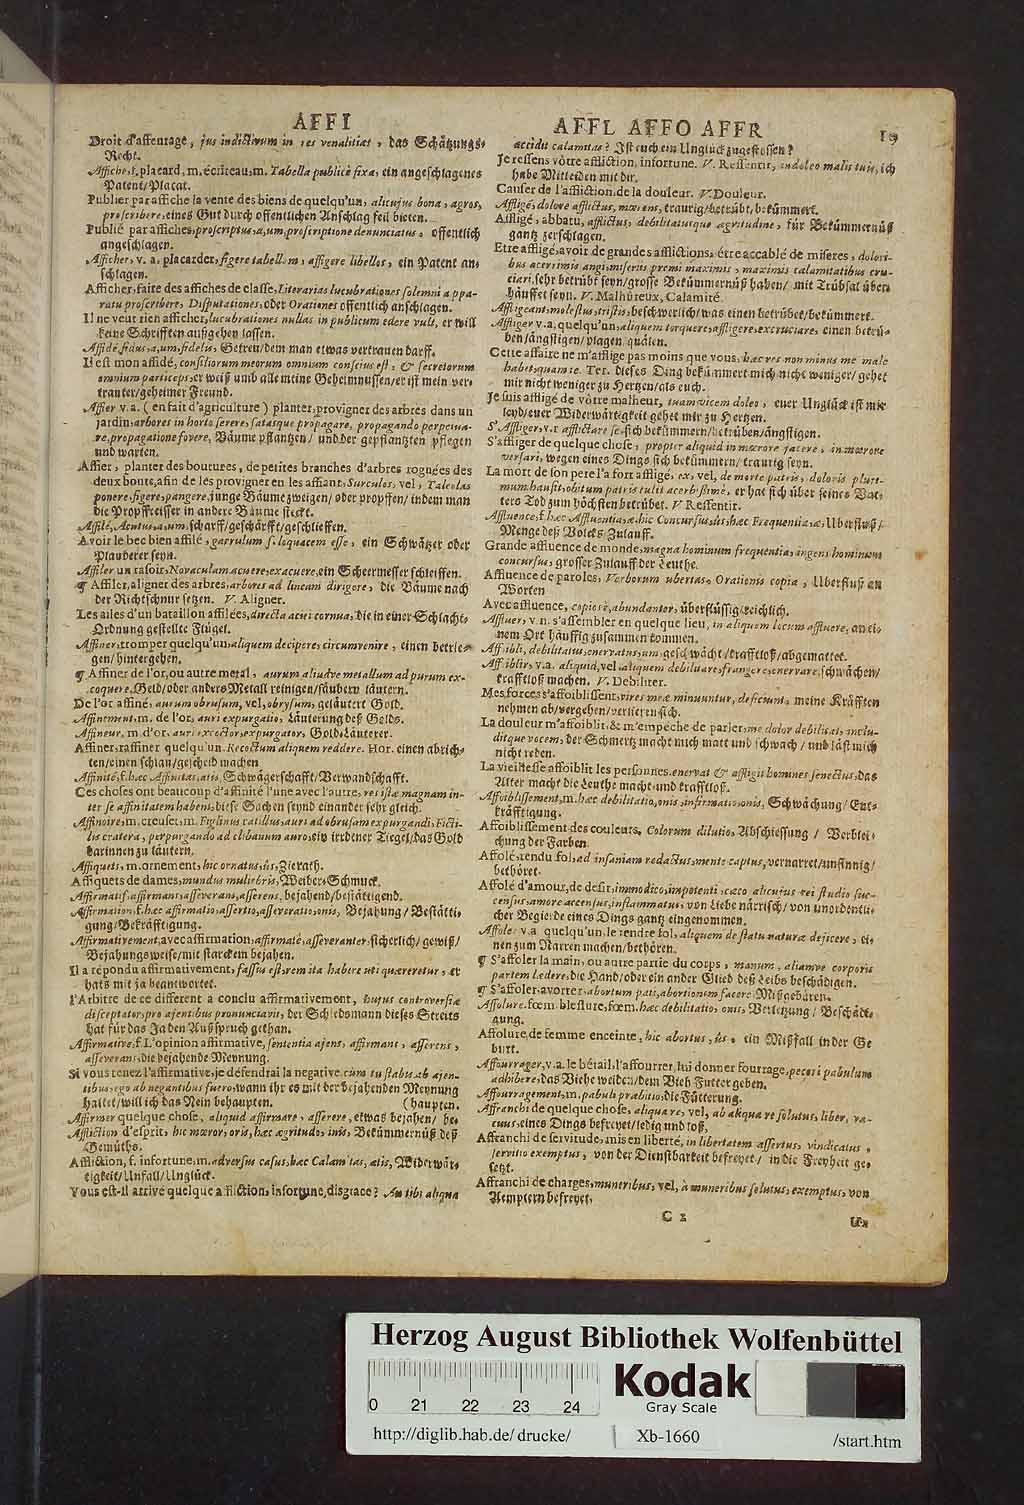 AFFI
Droit d'affeurage, jus indictivum in res venalities, das Schätzungs-
Recht.
Affiche, f. placard, m. écriteau, m. Tabella publicè fixa, ein angeschlagenes
Patent/Placat.
Publier par affiche la vente des biens de quelqu'un, alicujus bona, agros,
proscribere, eines Gut durch offentlichen Anschlag feil bieten.
Publié par affiches, proscriptus, a, um, proscriptione denunciatus, offentlich
angeschlagen.
Afficher, v. a. placarder, figere tabellam, affigere libellos, ein Patent an-
schlagen.
Afficher, faire des affiches de classe, Literarias lucubrationes solemni appa-
ratu proscribere, Disputationes, oder Orationes offentlich anschlagen.
Il ne veut rien afficher, lucubrationes nullas in publicum edere vult, er will
keine Schrifften außgehen lassen.
Affidé, fidus, a, um, fidelis, Getreu/dem man etwas vertrauen darff.
Il est mon affidé, consiliorum meorum omnium conscius est, & secretorum
omnium particeps, er weiß umb alle meine Geheimnussen/er ist mein ver-
trauter/geheimer Freund.
Affier v.a. (en fait d'agriculture) planter, provigner des arbres dans un
jardin, arbores in horto serere, satasque propagare, propagando perpetua-
re, propagatione fovere, Bäume pflantzen/ und der gepflantzten pflegen
und warten.
Affier, planter des boutures, de petites branches d'arbres rognées des
deux bouts, afin de les provigner en les affiant, Surculos, vel, Taleolas
ponere, figere, pangere, junge Bäume zweigen/ oder propffen/ indem man
die Propffreisser in andere Bäume steckt.
Affilé, Acutus, a, um, scharff/geschärfft/geschlieffen.
Avoir le bec bien affilé, garrulum s. loquacem esse, ein Schwätzer oder
Plauderer seyn.
Affiler un rasoir, Novaculam acuere, exacuere, ein Scheermesser schleiffen.
¶ Affiler, aligner des arbres, arbores ad lineam dirigere, die Bäume nach
der Richtschnur setzen. V. Aligner.
Les ailes d'un bataillon affilées, directa aciei cornua, die in einer Schlacht-
Ordnung gestellte Flügel.
Affiner, tromper quelqu'un, aliquem decipere, circumvenire, einen betrie-
gen/hintergehen.
¶ Affiner de l'or, ou autre metal, aurum aliudve metallum ad purum ex-
coquere, Geld/oder anders Metall reinigen/säubern/läutern.
De l'or affiné, aurum obrusum, vel, obryzum, geläutert Gold.
Affinement, m. de l'or, auri expurgatio, Läuterung deß Golds.
Affineur, m. d'or, auri excoctor, expurgator, Gold-Läuterer.
Affiner, raffiner quelqu'un. Recoctum aliquem reddere. Hor. einen abrich-
ten/einen schlau/gescheid machen
Affinité, f. hæc Affinitas, atis, Schwägerschafft/Verwandschafft.
Ces choses ont beaucoup d'affinité l'une avec l'autre, res istæ magnam in-
ter se affinitatem habent, diese Sachen seynd einander sehr gleich.
Affinoire, m. creuset, m. Figlinus catillus, auri ad obrusam expurgandi, Ficti-
lis cratera, perpurgando ad clibanum auro, ein irrdener Tiegel/das Gold
darinnen zu läutern.
Affiquets, m. ornement, hic ornatus, ûs, Zierath.
Affiquets de dames, mundus muliebris, Weiber-Schmuck.
Affirmatif, affirmans, asseverans, asserens, bejahend/bestättigend.
Affirmation, f. hæc affirmatio, assertio, asseveratio, onis, Bejahung/ Bestätti-
gung/Bekräfftigung.
Affirmativement, avec affirmation, affirmatè, asseveranter, sicherlich/ gewiß/
Bejahungsweise/mit starckem bejahen.
Il a répondu affirmativement, fassus est, rem ita habere uti quæreretur, er
hats mit ja beantwortet.
l'Arbitre de ce different a conclu affirmativement, hujus controversiæ
disceptator, pro ajentibus pronunciavit, der Schiedsmann dieses Streits
hat für das Ja den Außspruch gethan.
Affirmative, f. L'opinion affirmative, sententia ajens, affirmans, asserens,
asseverans, die bejahende Meynung.
Si vous tenez l'affirmative, je défendrai la negative, cùm tu stabis ab ajen-
tibus, ego ab negantibus fuero, wann ihr es mit der bejahenden Meynung
haltet/will ich das Nein behaupten. (haupten.
Affirmer quelque chose, aliquid affirmare, asserere, etwas bejahen/ be-
Affliction d'esprit, hic mœror, oris, hæc ægritudo, inis, Bekümmernüß deß
Gemüths.
Affliction, f. infortune, m. adversus casus, hæc Calamitas, atis, Widerwär-
tigkeit/Unfall/Unglück.
Vous est-il arrivé quelque affliction, infortune, disgrace? An tibi aliqua
AFFL AFFO AFFR 19
accidit calamitas? Ist euch ein Unglück zugestossen?
Je ressens vôtre affliction, infortune. V. Ressentir, indoleo malis tuis, ich
habe Mitleiden mit dir.
Causer de l'affliction, de la douleur. V. Douleur.
Affligé, dolore afflictus, mœrens, traurig/betrübt/bekümmert.
Affligé, abbatu, afflictus, debilitatusque ægritudine, für Bekümmernüß
gantz zerschlagen.
Etre affligé, avoir de grandes afflictions, étre accablé de miseres, dolori-
bus acerrimis angi, miseriis premi maximis, maximis calamitatibus cru-
ciari, sehr betrübt seyn/grosse Bekümmernüß haben/ mit Trübsal über-
häuffet seyn. V. Malhûreux, Calamité.
Affligeant, molestus, tristis, beschwerlich/was einen betrübet/bekümmert.
Affliger v.a. quelqu'un, aliquem torquere, affligere, excruciare, einen betrü-
ben/ängstigen/plagen/quälen.
Cette affaire ne m'afflige pas moins que vous, hæc res non minus me male
habet, quam te. Ter. dieses Ding bekümmert mich nicht weniger/ gehet
mir nicht weniger zu Hertzen/als euch.
Je suis affligé de vôtre malheur, tuam vicem doleo, euer Unglück ist mir
leyd/euer Widerwärtigkeit gehet mir zu Hertzen.
S'Affliger, v.r. afflictare se, sich bekümmern/betrüben/ängstigen.
S'affliger de quelque chose, propter aliquid in mœrore jacere, in mœrore
versari, wegen eines Dings sich bekümmern/ traurig seyn.
La mort de son pere l'a fort affligé, ex, vel, de morte patris, doloris pluri-
mum hausit, obitum patris tulit acerbissimè, er hat sich über seines Vat-
ters Tod zum höchsten betrübet. V. Ressentir.
Affluence, f. hæc Affluentia, æ. hic Concursus, ûs, hæc Frequentia, æ, Uberfluß/
Menge deß Volcks-Zulauff.
Grande affluence de monde, magna hominum frequentia, ingens hominum
concursus, grosser Zulauff der Leuthe.
Affluence de paroles, Verborum ubertas, Orationis copia, Uberfluß an
Worten
Avec affluence, copiosè, abundanter, überflüssig/reichlich.
Affluer, v. n. s'assembler en quelque lieu, in aliquem locum affluere, an ei-
nem Ort häuffig zusammen kommen.
Affoibli, debilitatus, enervatus, um, geschwächt/krafftloß/abgemattet.
Affoiblir, v.a. aliquid, vel aliquem debilitare, frangere, enervare, schwächen/
krafftloß machen. V. Debiliter.
Mes forces s'affoiblissent, vires meæ minuuntur, deficiunt, meine Kräfften
nehmen ab/vergehen/verlieren sich.
La douleur m'affoiblit, & m'empéche de parler, me dolor debilitat, inclu-
ditque vocem, der Schmertz macht mich matt und schwach/ und läst mich
nicht reden.
La vieillesse affoiblit les personnes, enervat & affligit homines senectus, das
Alter macht die Leuthe matt und krafftloß.
Affoiblissement, m. hæc debilitatio, onis, infirmatio, onis, Schwächung/ Ent-
kräfftigung.
Affoiblissement des couleurs, Colorum dilutio, Abschiessung/ Verblei-
chung der Farben.
Affolé, rendu fol, ad insaniam redactus, mente captus, vernarret/unsinnig/
bethöret.
Affolé d'amour, de desir, immodico, impotenti, cæco alicujus rei studio suc-
census, amore accensus, inflammatus, von Liebe närrisch/ von unordentli-
cher Begierde eines Dings gantz eingenommen.
Affoler v.a. quelqu'un, le rendre fol, aliquem de statu naturæ dejicere, ei-
nen zum Narren machen/bethören.
¶ S'affoler la main, ou autre partie du corps, manum, aliamve corporis
partem lædere, die Hand/oder ein ander Glied deß Leibs beschädigen.
¶ S'affoler, avorter, abortum pati, abortionem facere, Mißgebären.
Affolure, fœm. blessure, fœm. hæc debilitatio, onis, Verletzung/ Beschädi-
gung.
Affolure de femme enceinte, hic abortus, ûs, ein Mißfall in der Ge-
burt.
Affourrager, v.a. le bétail, l'affourrer, lui donner fourrage, pecori pabulum
adhibere, das Viehe weiden/dem Vieh Futter geben.
Affourragement, m. pabuli præbitio, die Fütterung.
Affranchi de quelque chose, aliqua re, vel, ab aliqua re solutus, liber, va-
cuus, eines Dings befreyet/ledig und loß.
Affranchi de servitude, mis en liberté, in libertatem assertus, vindicatus,
servitio exemptus, von der Dienstbarkeit befreyet/ in die Freyheit ge-
setzt.
Affranchi de charges, muneribus, vel, à muneribus solutus, exemptus, von
Aemptern befreyet.
C 2
Herzog August Bibliothek Wolfenbüttel
Kodak
Gray Scale
0 21 22 23 24
http://diglib.hab.de/drucke/ Xb-1660 /start.htm